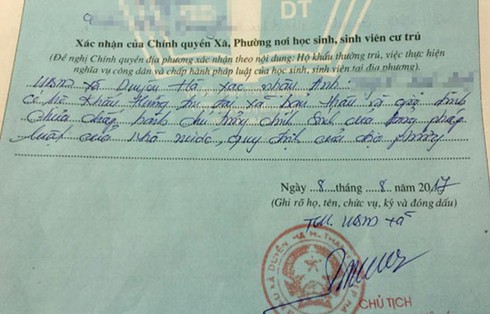 DT
Xác nhận của Chính quyền Xã, Phường nơi học sinh, sinh viên cư trú
(Đề nghị Chính quyền địa phương xác nhận theo nội dung: Hộ khẩu thường trú, việc thực hiện
nghĩa vụ công dân và chấp hành pháp luật của học sinh, sinh viên tại địa phương).
UBND xã Duyên Hà xác nhận Anh:
Có hộ khẩu thường trú tại xã bản thân và gia đình
chưa chấp hành chủ trương chính sách của Đảng pháp
luật của Nhà nước, quy định của địa phương
Ngày 8 tháng 8 năm 2017
(Ghi rõ họ, tên, chức vụ, ký và đóng dấu)
TM. UBND xã
XÃ DUYÊN HÀ H. THA
CHỦ TỊCH